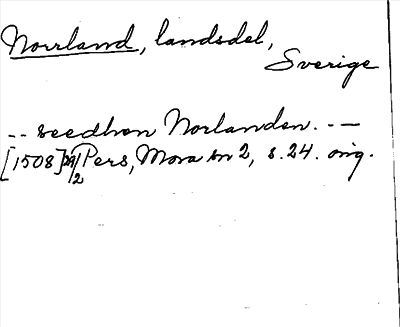 Norrland, landsdel,
Sverige
-- seedhon Norlanden. --
[1508] 29/2 Pers, Mora sn 2, s. 24. orig.